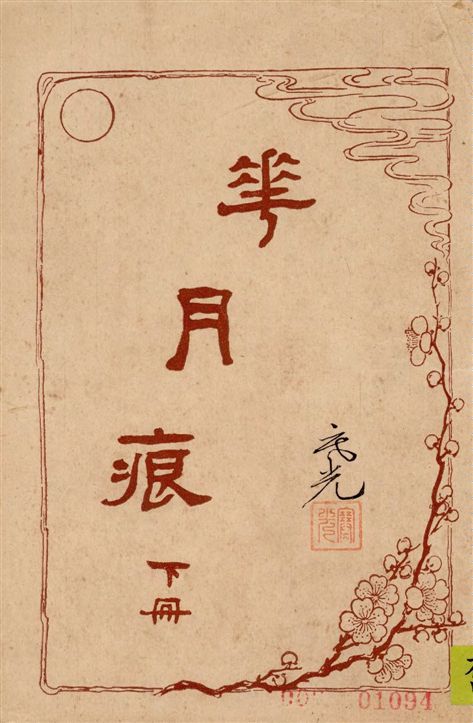 華月痕
下冊
光
01094